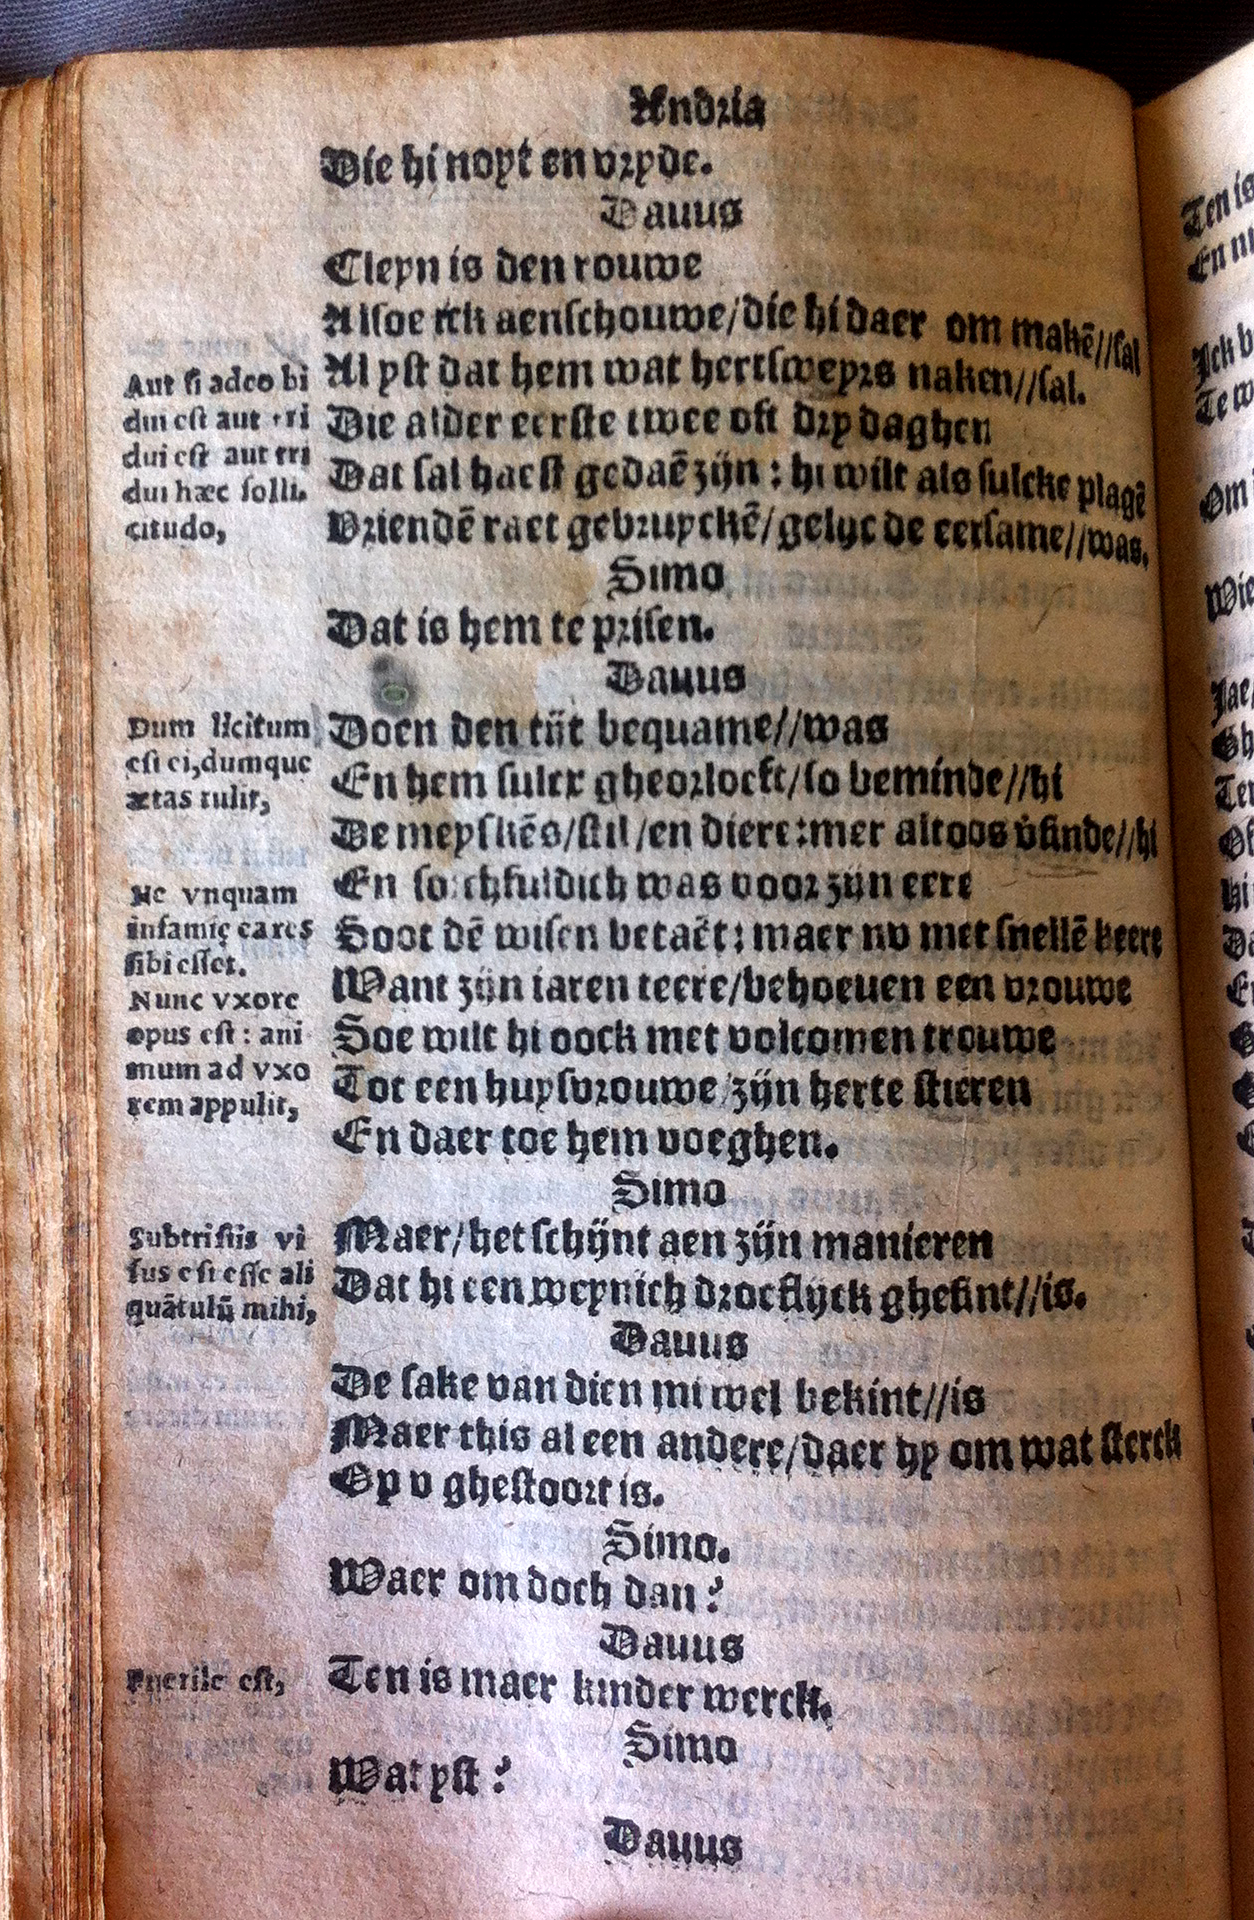 Andria
Die hi noyt en vryde.
Dauus
Cleyn is den rouwe
Alsoe ick aenschouwe/die hi daer om makē//sal
Al yst dat hem wat hertsweyrs naken//sal.
Die alder eerste twee oft dry daghen
Dat sal haest gedaē zijn: hi wilt als sulcke plagē
Vriendē raet gebruyckē/gelijc de eersame//was.
Simo
Dat is hem te prisen.
Dauus
Doen den tijt bequame//was
En hem sulcx gheorloeft/so beminde//hi
De meyskēs/stil/en diere:mer altoos v̓sinde//hi
En sorchfuldich was voor zijn eere
Soot dē wisen betaēt: maer nv met snellē keere
Want zijn iaren teere/behoeuen een vrouwe
Soe wilt hi oock met volcomen trouwe
Tot een huysvrouwe/zijn herte stieren
En daer toe hem voeghen.
Simo
Maer/het schijnt aen zijn manieren
Dat hi een weynich droeflijck ghesint//is.
Dauus
De sake van dien mi wel bekint//is
Maer this al een andere/daer hy om wat sterck
Op v ghestoort is.
Simo.
Waer om doch dan?
Dauus
Ten is maer kinder werck.
Simo
Wat yst?
Dauus
Aut si adeo bi
dui est aut tri
dui est aut tri
dui hæc solli.
citudo,
Dum licitum
est ei,dumque
ætas tulit,
Ne vnquam
infamię eares
sibi esset.
Nunc vxore
opus est: ani
mum ad vxo
rem appulit,
Subtristis vi
sus est esse ali
quātulū mihi,
Puerile est,
Ten is
En nu
Ick b
Te w
Om
Wie
Jae
Gh
Ten
Of
hi
Da